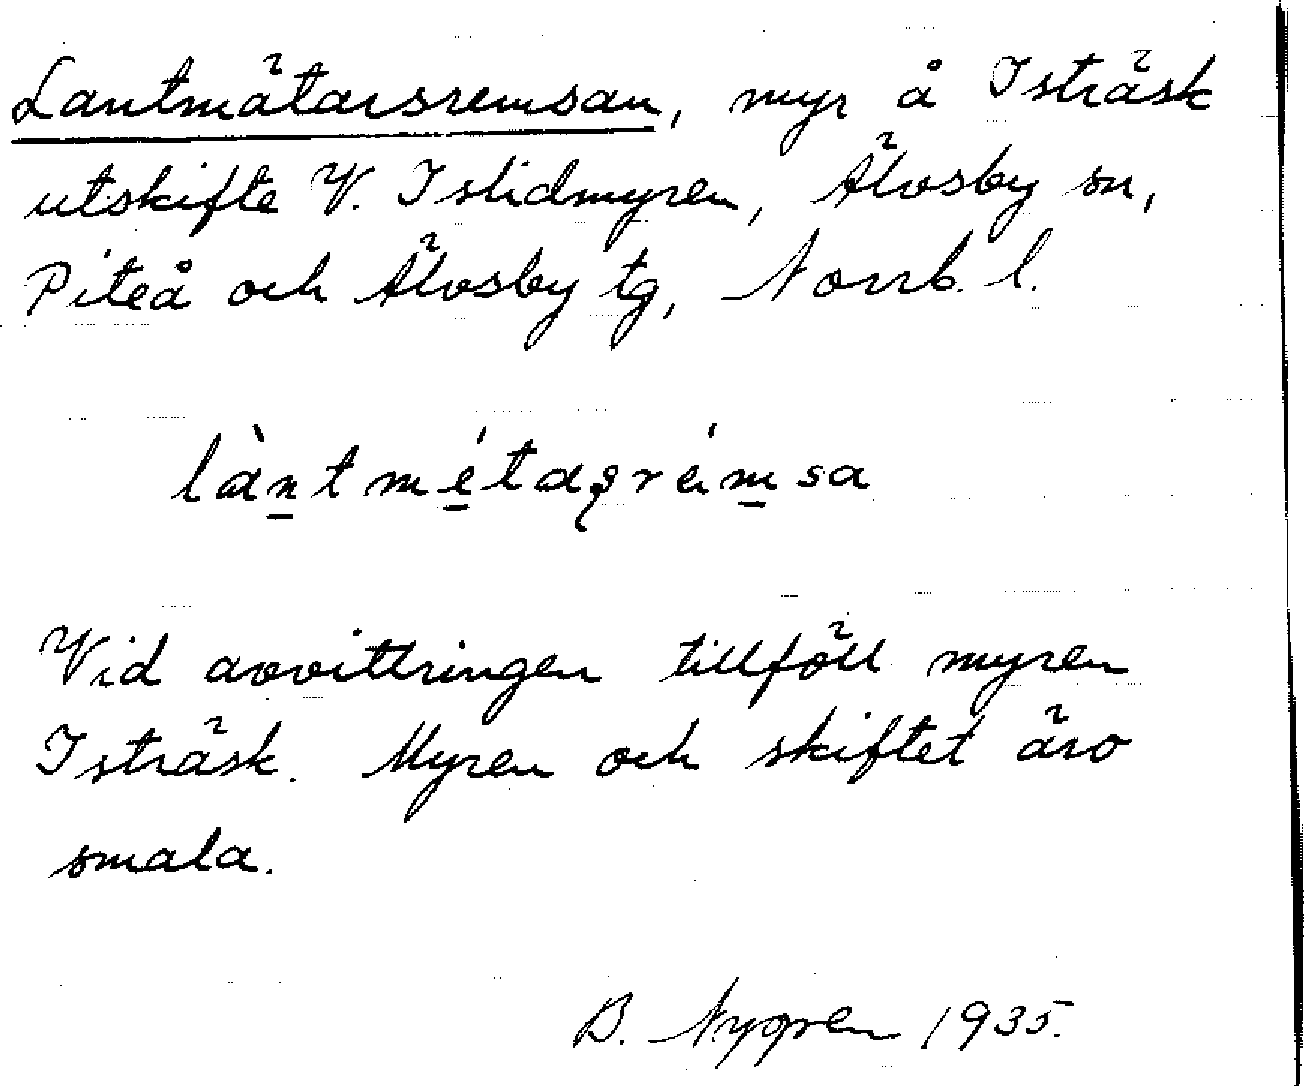 Lantmätarsremsan, myr å Isträsk
utskifte V. Islidmyren, Älvsby sn,
Piteå och Älvsby tg, Norrb. l.
làntmétaʂrémsa
Vid avvittringen tillföll myren
Isträsk. Myren och skiftet äro
smala.
B. Nygren 1935.